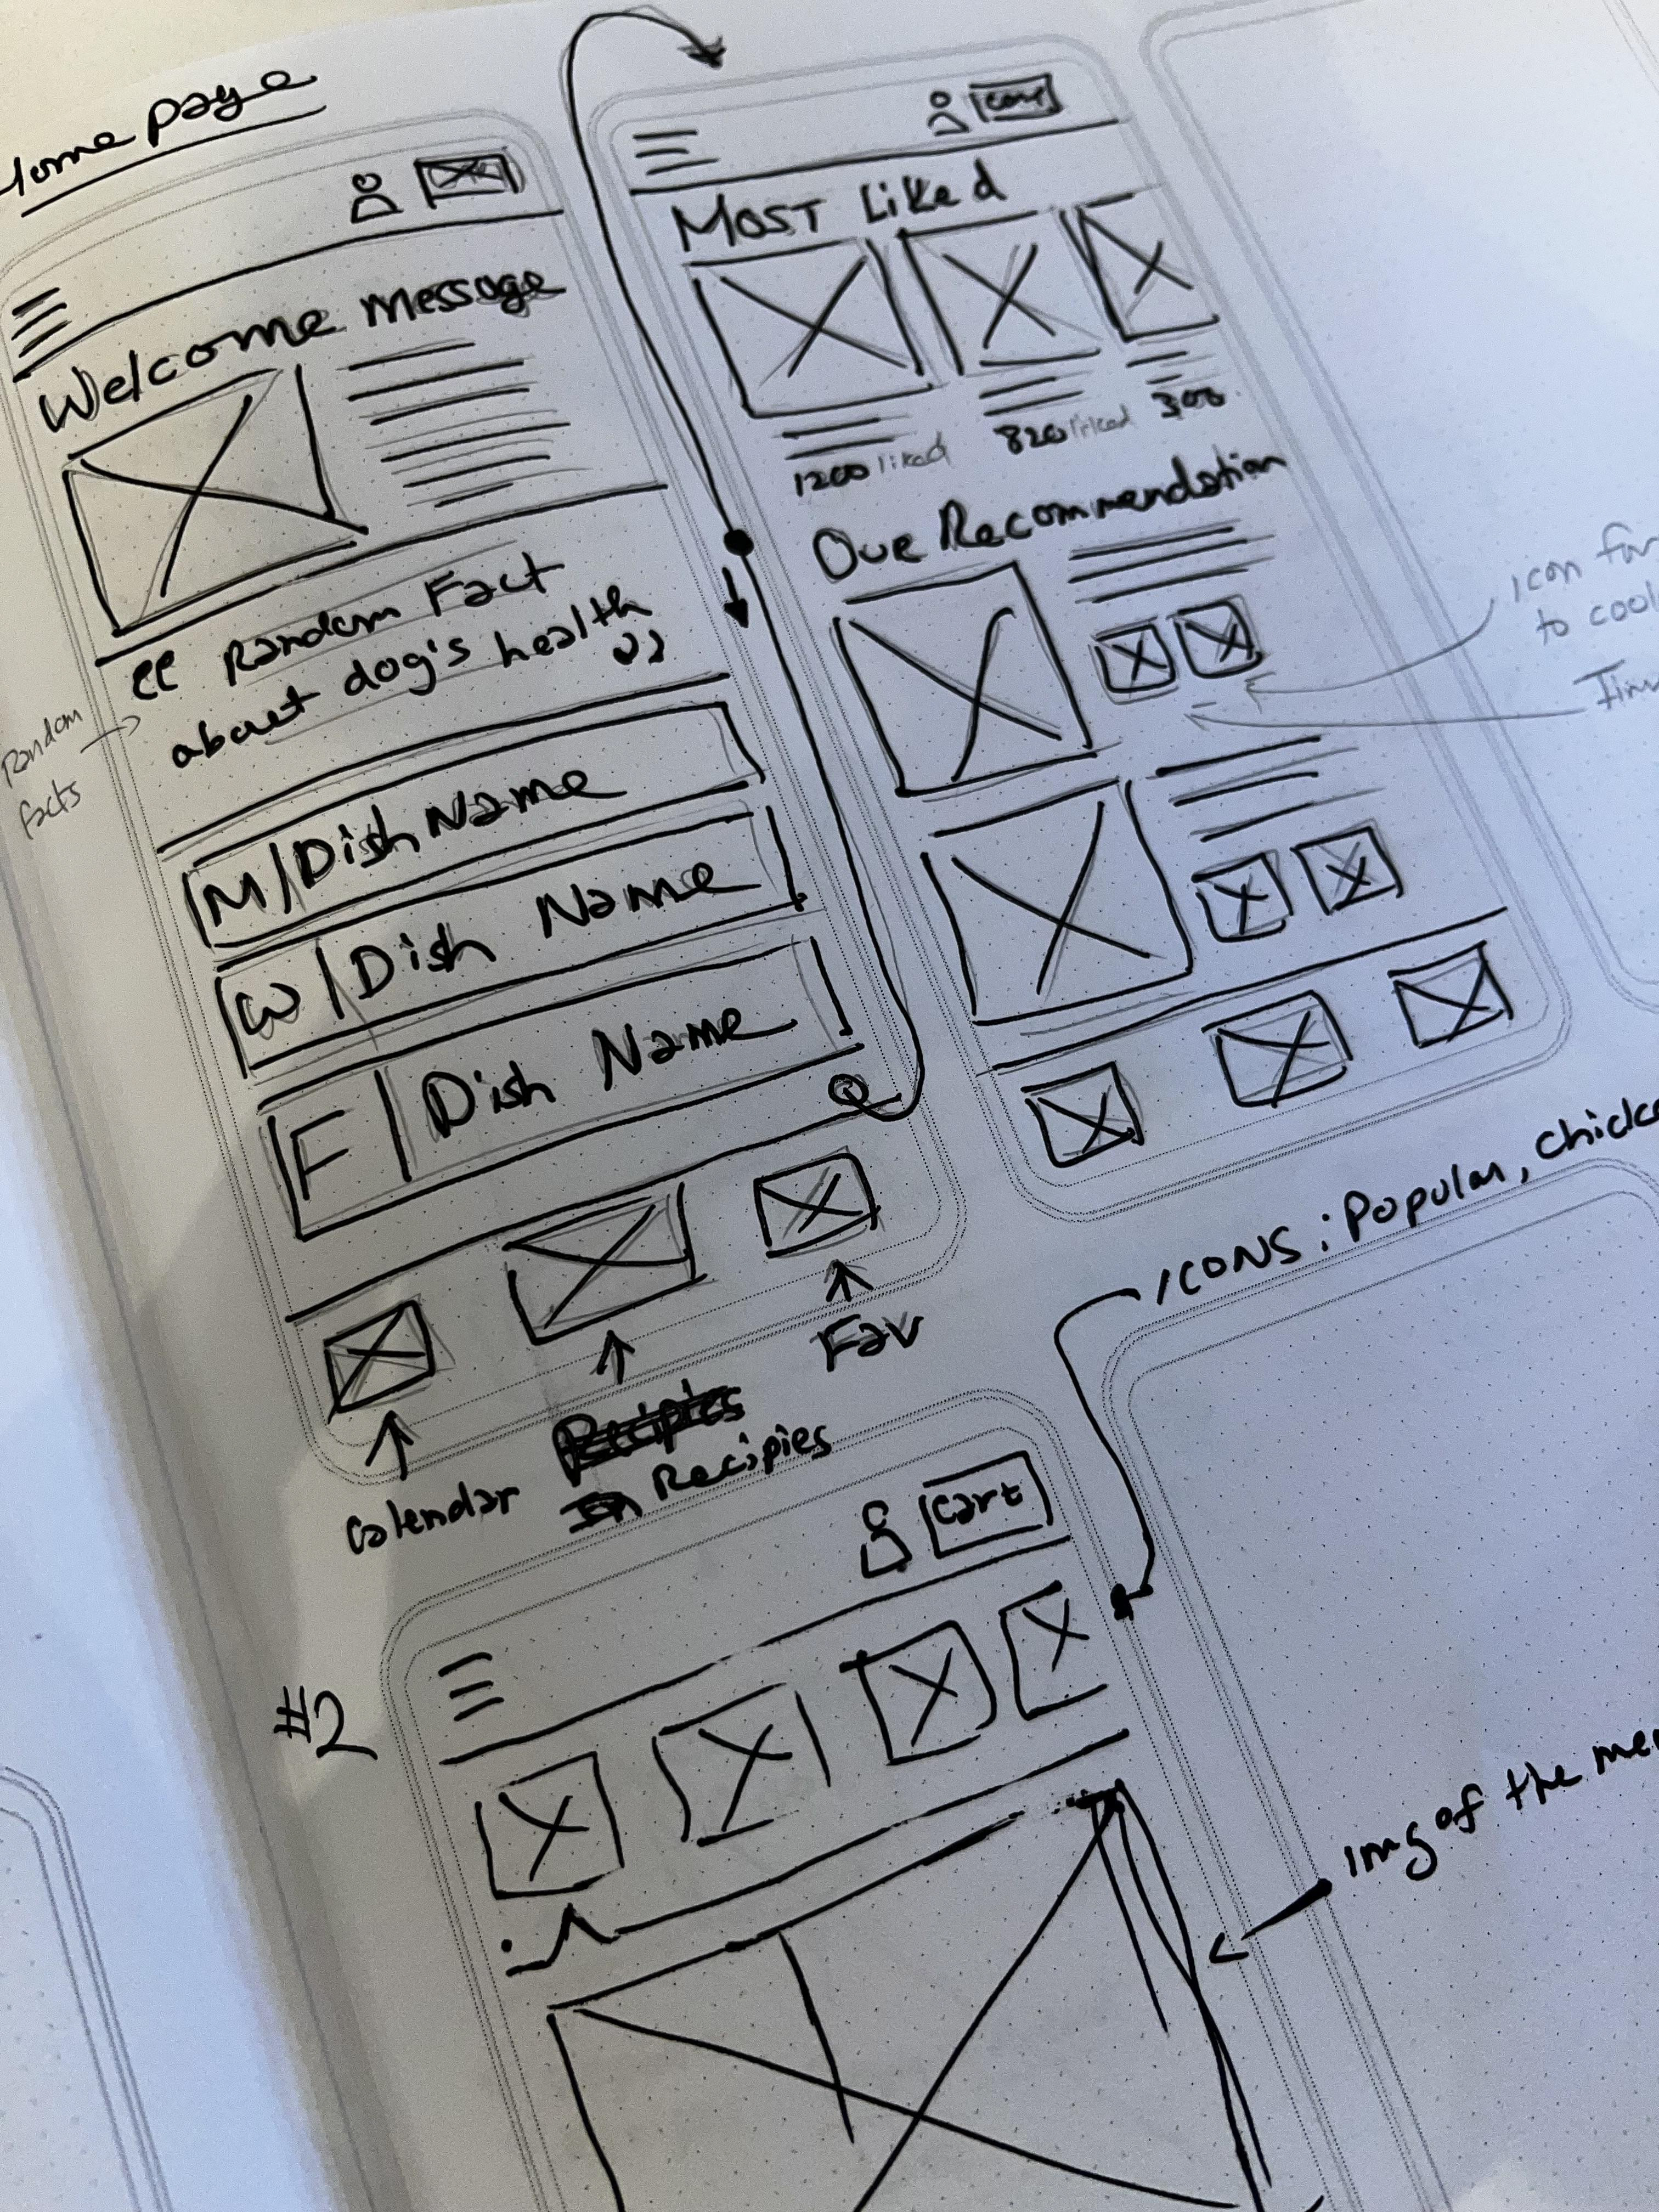 Home page
Welcome message
Random Fact
about dog's health
Random
facts
M Dish Name
W Dish Name
F Dish Name
Calendar
Recipies
Fav
Most Liked
1200 liked
820 liked
300
Our Recommendation
icon for
to
ICONS: Popular,
#2
cart
img of the